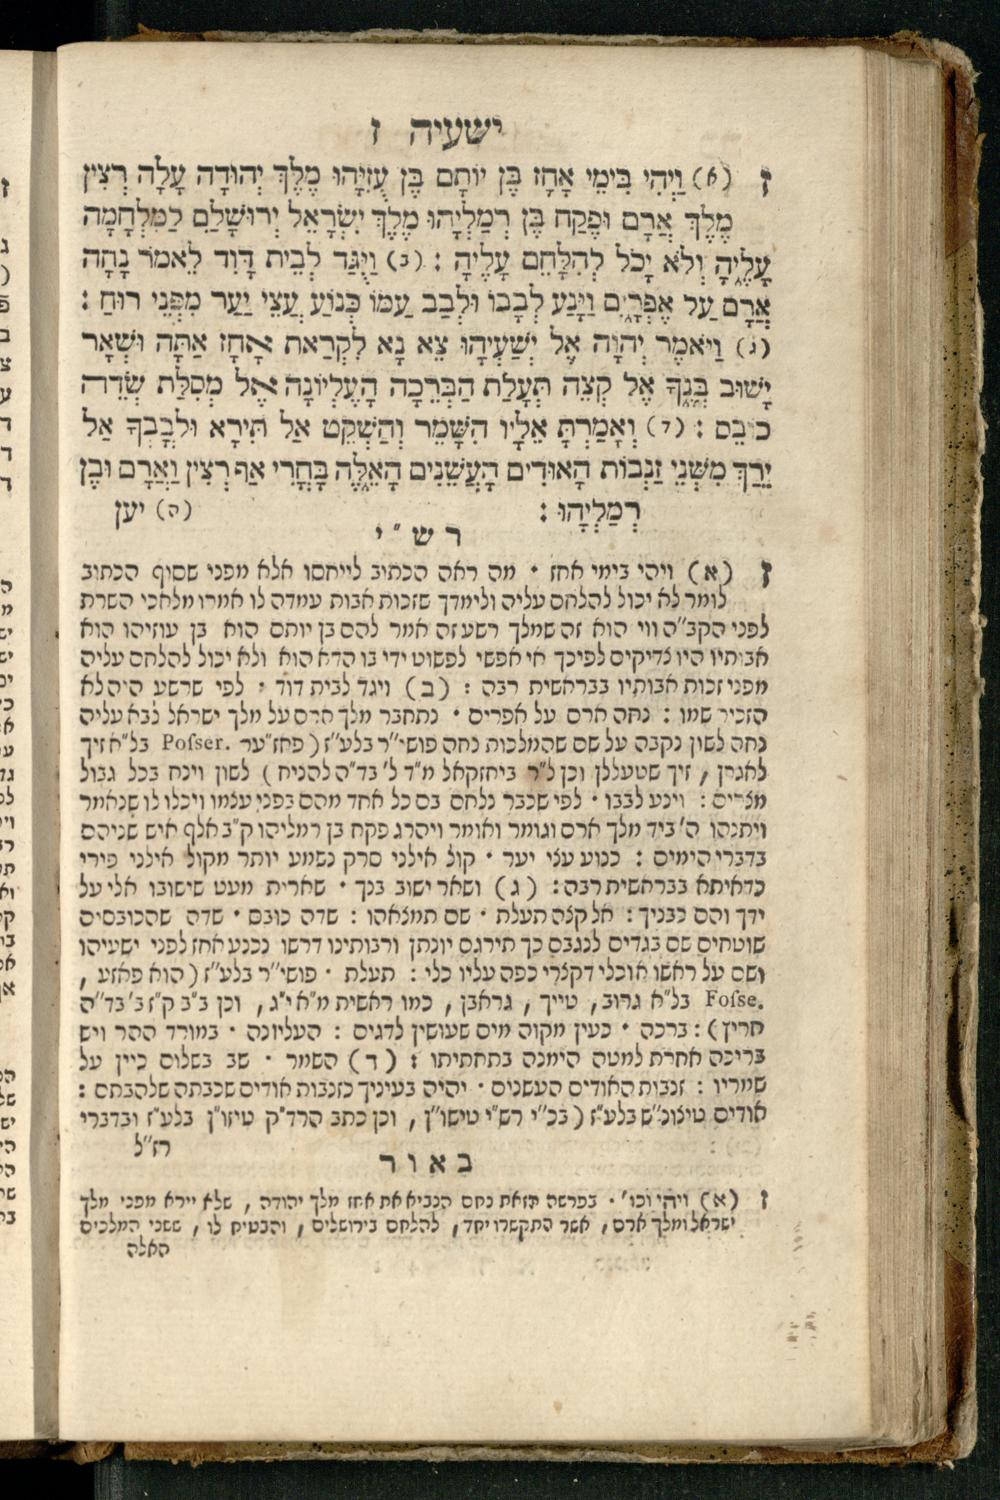 ישעיה ז
ז (א) וַיְהִי בִּימֵי אָחָז בֶּן יוֹתָם בֶּן עֻזִּיָּהוּ מֶלֶךְ יְהוּדָה עָלָה רְצִין
מֶלֶךְ אֲרָם וּפֶקַח בֶּן רְמַלְיָהוּ מֶלֶךְ יִשְׂרָאֵל יְרוּשָׁלַםִ לַמִּלְחָמָה
עָלֶיהָ וְלֹא יָכֹל לְהִלָּחֵם עָלֶיהָ : (ב) וַיֻּגַּד לְבֵית דָּוִד לֵאמֹר נָחָה
אֲרָם עַל אֶפְרָיִם וַיָּנַע לְבָבוֹ וּלְבַב עַמּוֹ כְּנוֹעַ עֲצֵי יַעַר מִפְּנֵי רוּחַ :
(ג) וַיֹּאמֶר יְהוָה אֶל יְשַׁעְיָהוּ צֵא נָא לִקְרַאת אָחָז אַתָּה וּשְׁאָר
יָשׁוּב בְּנֶךָ אֶל קְצֵה תְּעָלַת הַבְּרֵכָה הָעֶלְיוֹנָה אֶל מְסִלַּת שְׂדֵה
כוֹבֵס : (ד) וְאָמַרְתָּ אֵלָיו הִשָּׁמֵר וְהַשְׁקֵט אַל תִּירָא וּלְבָבְךָ אַל
יֵרַךְ מִשְּׁנֵי זַנְבוֹת הָאוּדִים הָעֲשֵׁנִים הָאֵלֶּה בָּחֳרִי אַף רְצִין וַאֲרָם וּבֶן
רְמַלְיָהוּ : (ה) יען
רש"י
ז (א) ויהי בימי אחז · מה ראה הכתוב לייחסו אלא מפני שסוף הכתוב
לומר לא יכול להלחם עליה ולימדך שזכות אבות עמדה לו אמרו מלאכי השרת
לפני הקב"ה ווי הוא זה שמלך רשע זה אמר להם בן יותם הוא בן עוזיהו הוא
אבותיו היו צדיקים לפיכך אי אפשי לפשוט ידי בו הדא הוא ולא יכול להלחם עליה
מפני זכות אבותיו בבראשית רבה : (ב) ויגד לבית דוד · לפי שרשע היה לא
הזכיר שמו : נחה ארם על אפרים · נתחבר מלך ארם על מלך ישראל לבא עליה
נחה לשון נקבה על שם שהמלכות נחה פושי"ר בלע"ז ( פאז"ער Poſser. בל"א זיך
לאגרן , זיך שטעללן וכן ל"ר ביחזקאל מ"ד ל' בד"ה להניח ) לשון וינח בכל גבול
מצרים : וינע לבבו · לפי שכבר נלחם בם כל אחד מהם בפני עצמו ויכלו לו שנאמר
ויתנהו ה' ביד מלך ארם וגומר ואומר ויהרג פקח בן רמליהו ק"ב אלף איש שניהם
בדברי הימים : כנוע עצי יער · קול אילני סרק נשמע יותר מקול אילני פירי
כדאיתא בבראשית רבה : (ג) ושאר ישוב בנך · שארית מעט שישובו אלי על
ידך והם כבניך : אל קצה תעלת · שם תמצאהו : שדה כובס · שדה שהכובסים
שוטחים שם בגדים לנגבם כך תירגם יונתן ורבותינו דרשו נכנע אחז לפני ישעיהו
ושם על ראשו אוכלי דקצרי כפה עליו כלי : תעלת · פושי"ר בלע"ז ( הוא פאזע ,
Foſse. בל"א גרוב, טייך , גראבן , כמו ראשית מ"א י"ג, וכן ב"ב ק"ז ב' בד"ה
חריץ ) : ברכה · כעין מקוה מים שעושין לדגים : העליונה · במורד ההר ויש
בריכה אחרת למטה הימנה בתחתיתו : (ד) השמר · שב בשלום כיין על
שמריו : זנבות האודים העשנים · יהיה בעיניך כזנבות אודים שכבתה שלהבתם :
אודים בלע"ז ( בכ"י רש"י טישו"ן , וכן כתב הרד"ק טיזו"ן בלע"ז ובדברי
רז"ל
באור
ז (א) ויהי וכו' · בפרשה הזאת נחם הנביא את אחז מלך יהודה , שלא יירא מפני מלך
ישראל ומלך ארם, אשר התקשרו יחד, להלחם בירושלים , והבטיח לו , ששני המלכים
האלה